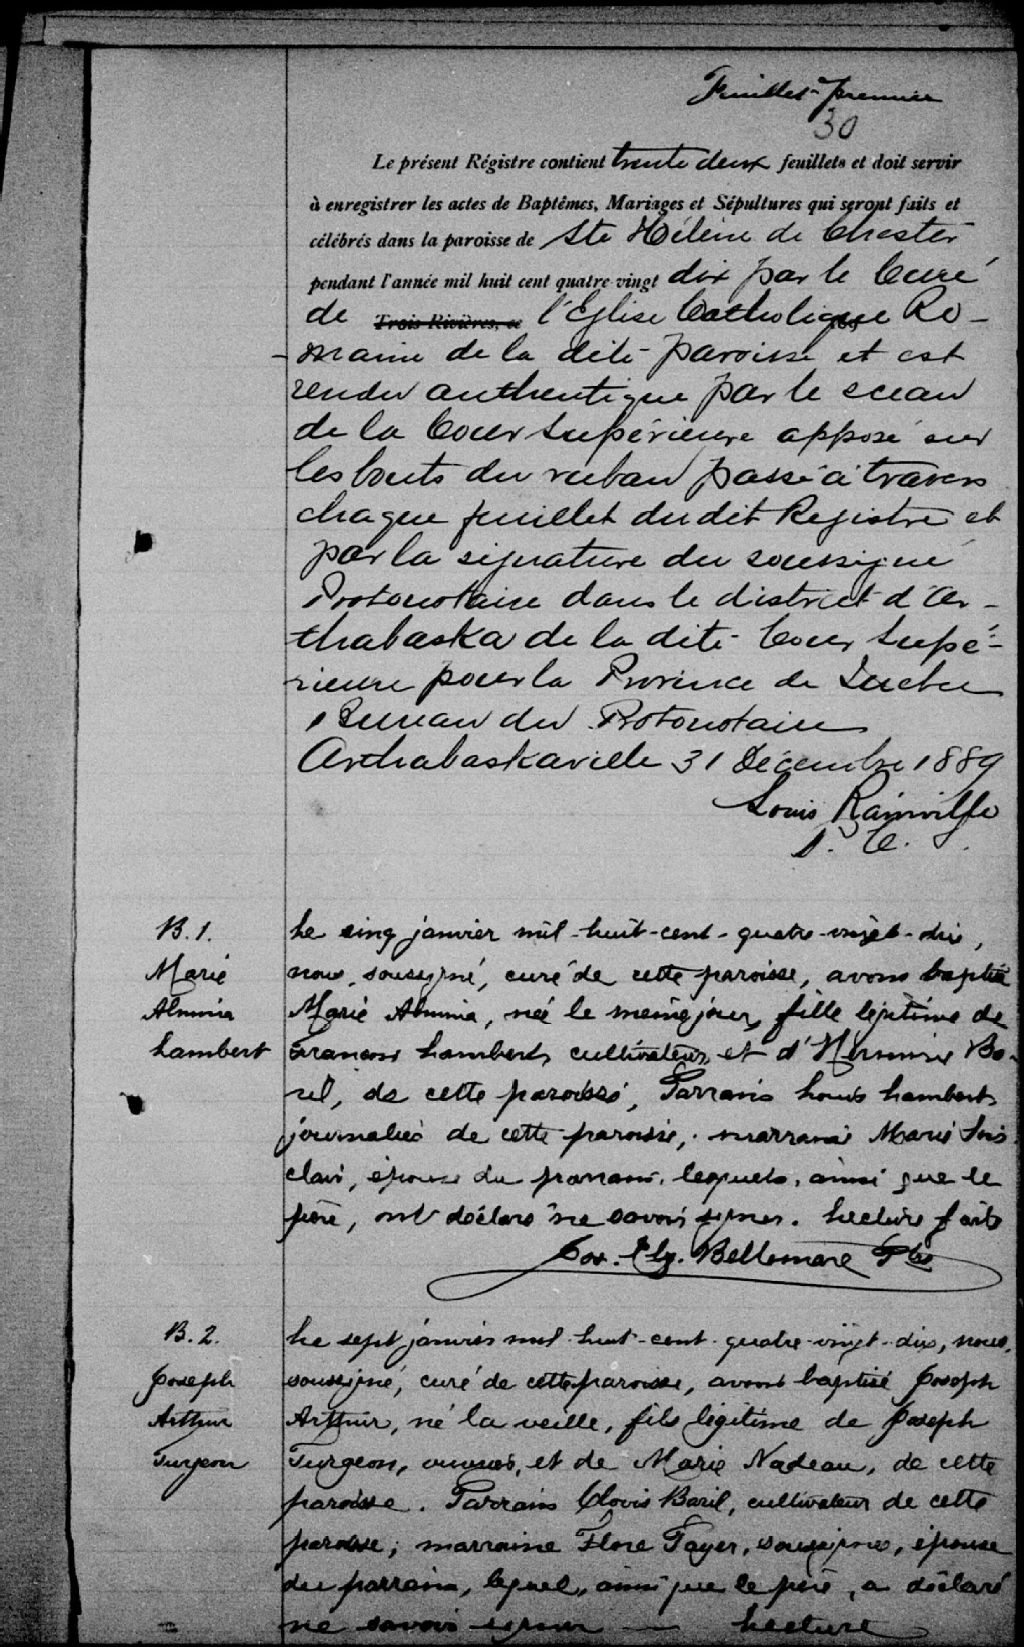 Feuillet premier
30
Le présent Régistre contient trente deux feuillets et doit servir
à enregistrer les actes de Baptêmes, Mariages et Sépultures qui seront faits et
célébrés dans la paroisse de Ste Hélène de Chester
pendant l'année mil huit cent quatre vingt dix par le Curé
de Trois-Rivières, ce l'Eglise Catholique Ro-
-maine de la dite paroisse et est
rendu authentique par le sceau
de la Cour Supérieure apposé sur
les bouts du ruban passé à travers
chaque feuillet du dit Registre et
par la signature du soussigné
Protonotaire dans le district d'Ar-
thabaska de la dite Cour Supé-
rieure pour la Province de Quebec
Bureau du Protonotaire
Arthabaskaville 31 Décembre 1889
Louis Rainville
P. C.
B. 1.
Marie
Almina
Lambert
Le cinq janvier mil-huit-cent-quatre-vingt-dix,
nous, soussigné, curé de cette paroisse, avons baptisé
Marie Almina, née le même jour, fille légitime de
François Lambert, cultivateur, et d'Herminie Ba-
ril, de cette paroisse, Parrain Louis Lambert,
journalier de cette paroisse, marraine Marie
épouse du parrain, lesquels, ainsi que le
père, ont déclaré ne savoir signer. Lecture faite
Jos. Elz. Bellemare Ptre
B. 2.
Joseph
Arthur
Turgeon
Le sept janvier mil-huit-cent-quatre-vingt-dix, nous,
soussigné, curé de cette paroisse, avons baptisé Joseph
Arthur, né la veille, fils légitime de Joseph
Turgeon, et de Marie Nadeau, de cette
paroisse. Parrain Clovis Baril, cultivateur de cette
paroisse; marraine Flore soussignée, épouse
du parrain, lequel, ainsi que le père, a déclaré
ne savoir signer — Lecture